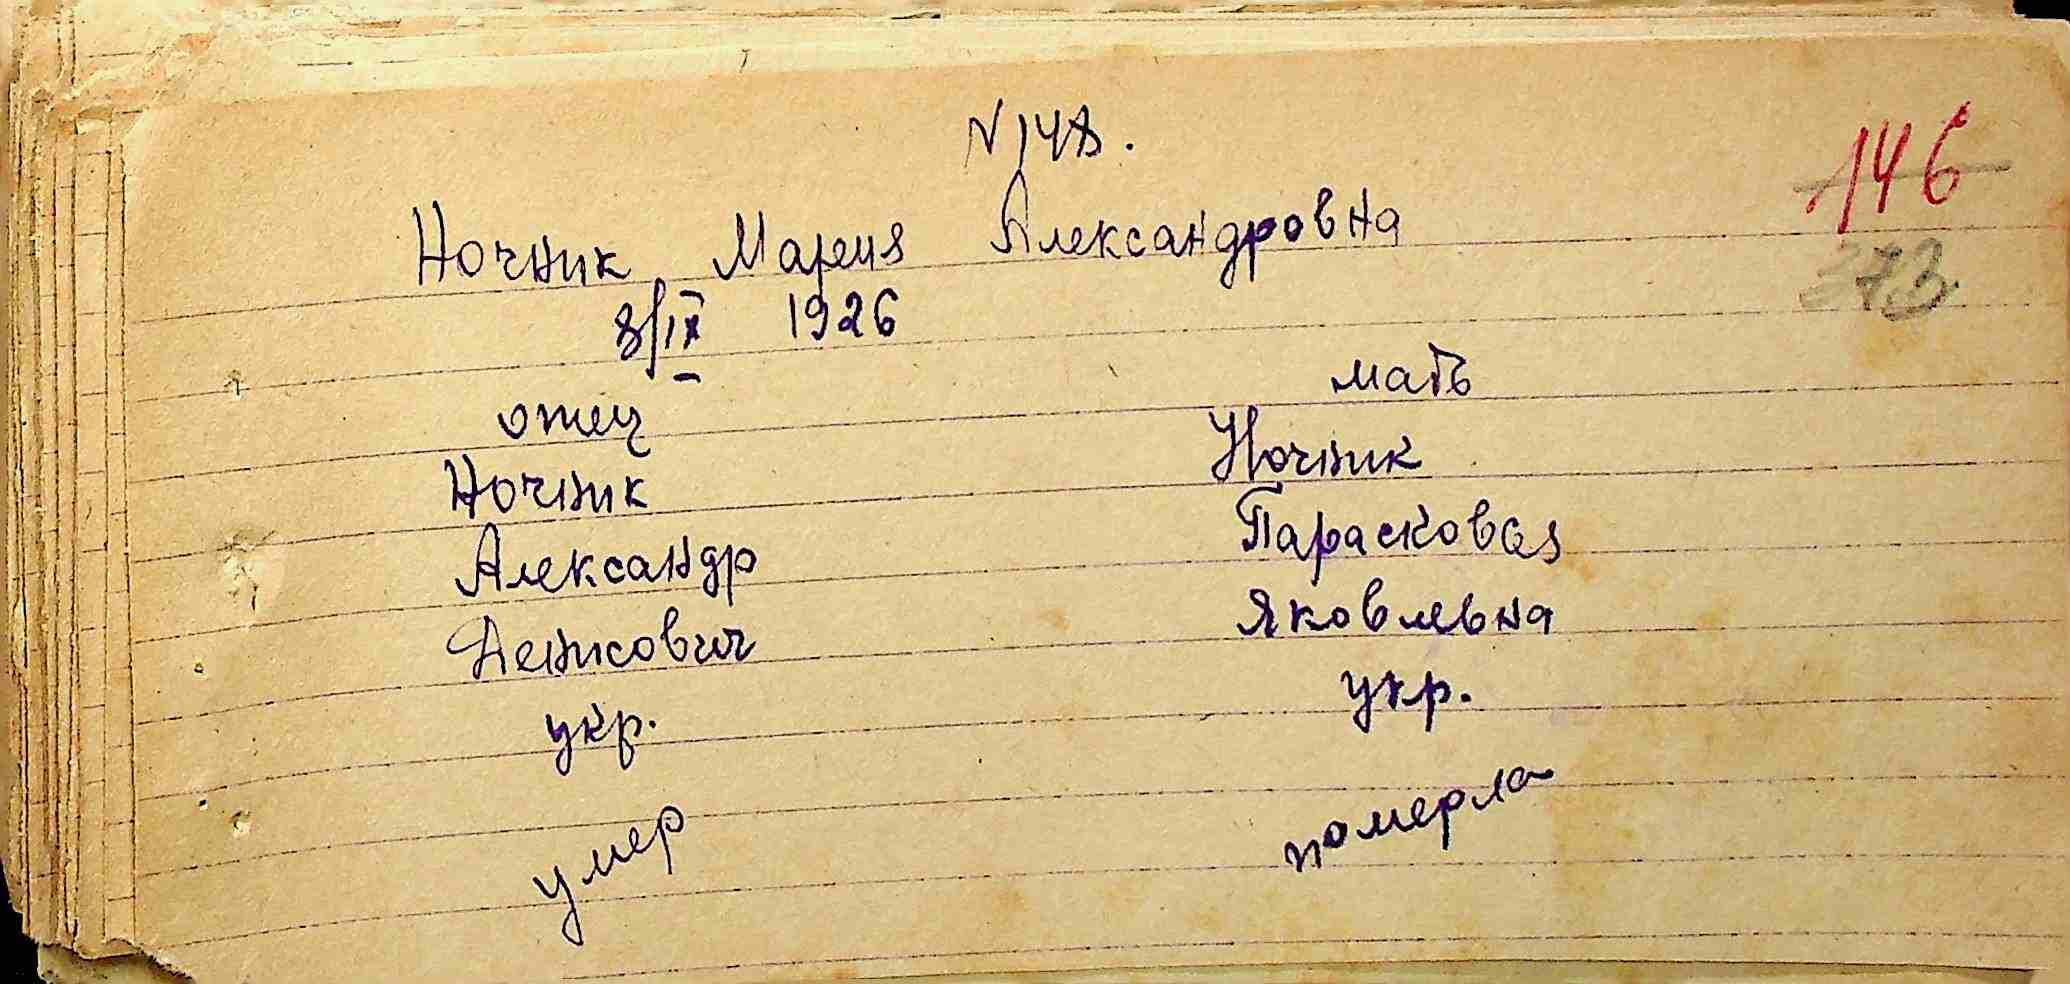 N 148.
146
373
Ночник Мария Александровна
8/IX 1926
отец
мать
Ночник
Ночник
Александр
Парасковая
Денисович
Яковлевна
укр.
укр.
умер
померла